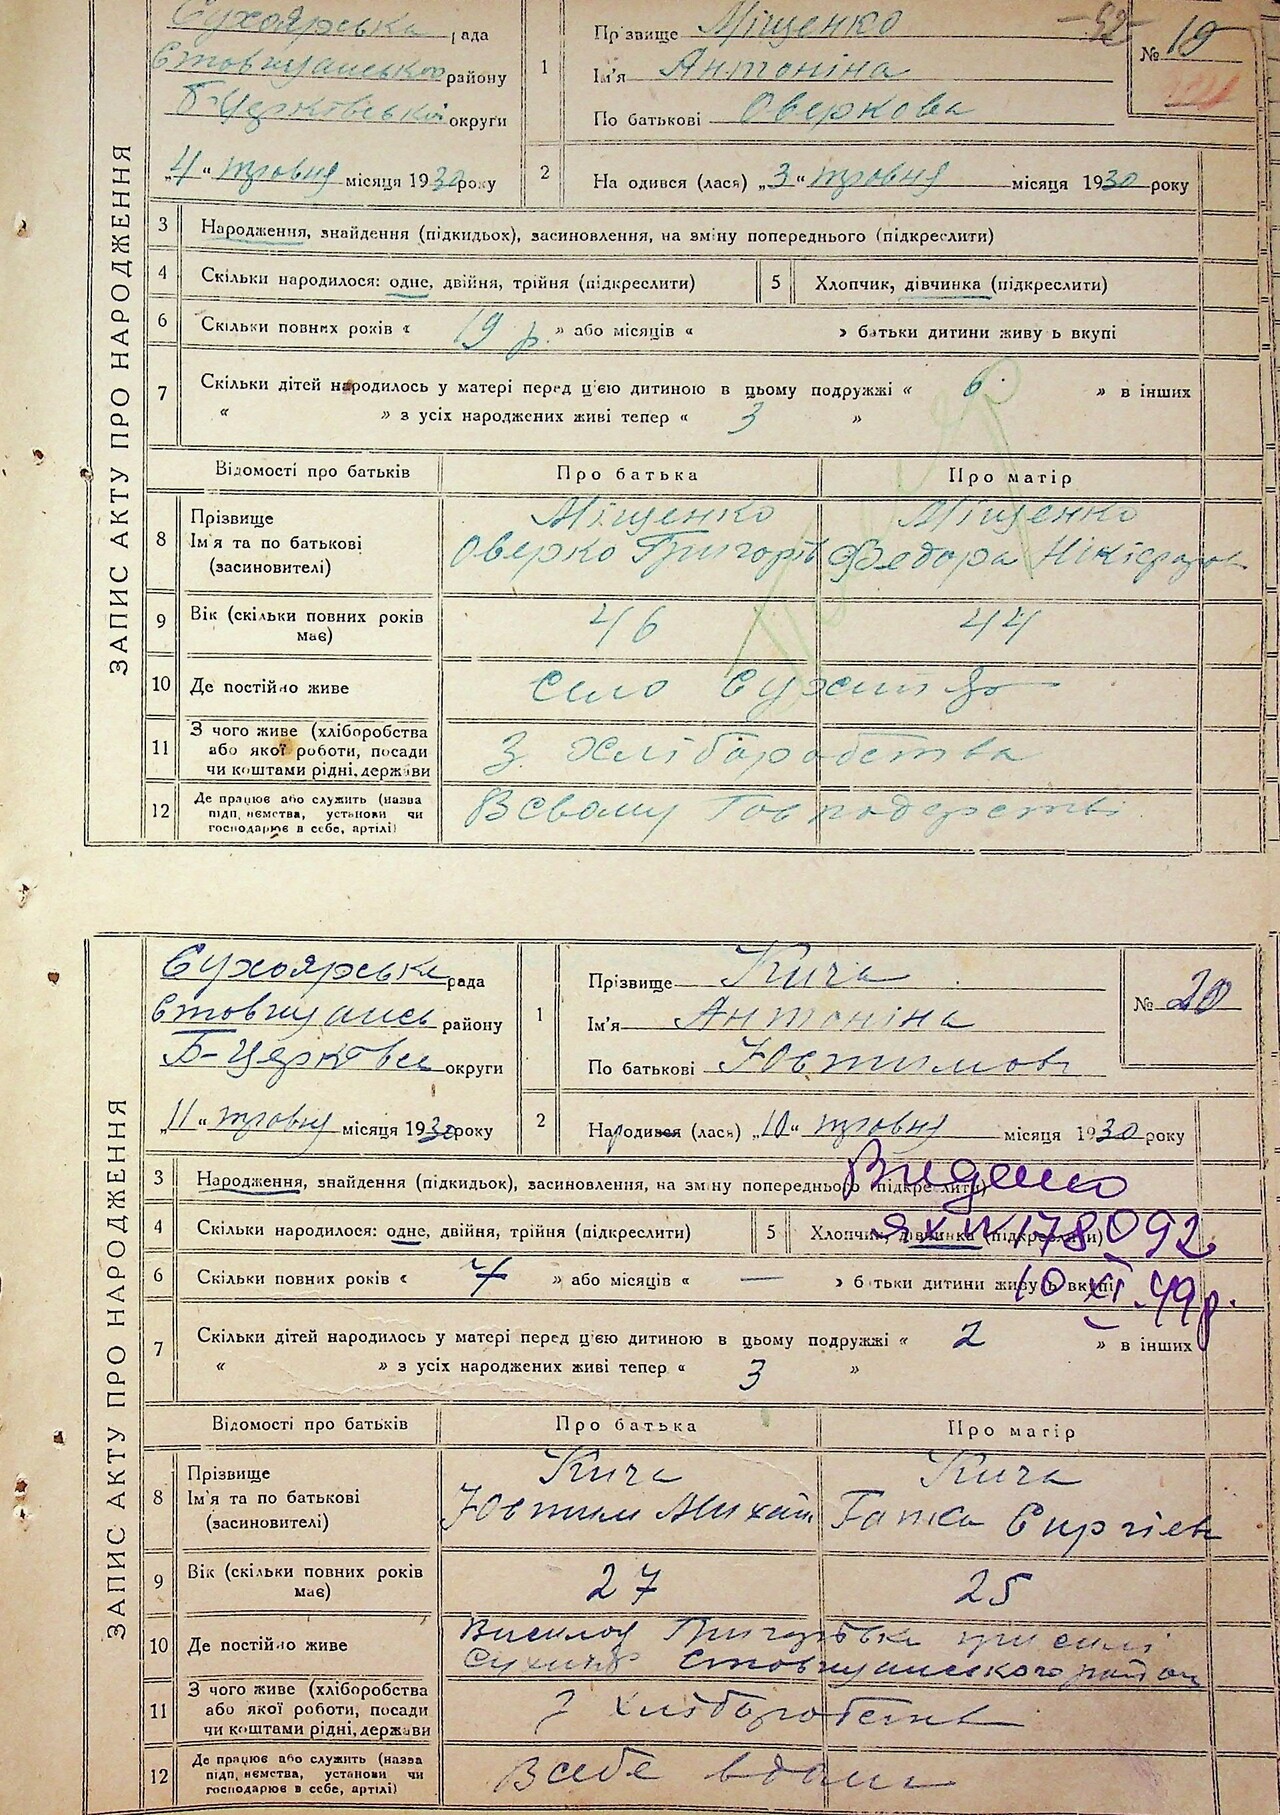 ЗАПИС АКТУ ПРО НАРОДЖЕННЯ
Сухоярська рада
району
Б-Церківської округи
„4“ травня місяця 1930 року
1
Прізвище Міщенко
Ім'я Антоніна
По батькові Оверкова
№ 19
2 На одився (лася) „3“ травня місяця 1930 року
3 Народження, знайдення (підкидьок), засиновлення, на зміну попереднього (підкреслити)
4 Скільки народилося: одне, двійня, трійня (підкреслити) 5 Хлопчик, дівчинка (підкреслити)
6 Скільки повних років « 19 р. » або місяців « » батьки дитини живу ь вкупі
7 Скільки дітей народилось у матері перед ц'єю дитиною в цьому подружжі « 6 » в інших
« » з усіх народжених живі тепер « 3 »
Відомості про батьків Про батька Про матір
8 Прізвище Міщенко Міщенко
Ім'я та по батькові Оверко Григорів Федора
(засиновителі)
9 Вік (скільки повних років має) 46 44
10 Де постійно живе село
11 З чого живе (хліборобства
або якої роботи, посади З хліборобства
чи коштами рідні, держави
12 Де працює або служить (назва
підп, иємства, установи чи В свому Господарстві
господарює в себе, артілі)
ЗАПИС АКТУ ПРО НАРОДЖЕННЯ
Сухоярська рада
району
Б-Церківсь округи
„11“ травня місяця 1930 року
1
Прізвище Кича
Ім'я Антоніна
По батькові Ювтимов
№ 20
2 Народився (лася) „10“ травня місяця 1930 року
3 Народження, знайдення (підкидьок), засиновлення, на зміну попереднього (підкреслити)
Видано
4 Скільки народилося: одне, двійня, трійня (підкреслити) 5 Хлопчик, дівчинка (підкреслити)
178092
6 Скільки повних років « 7 » або місяців « — » батьки дитини живуть вкупі
10 XI. 49 р.
7 Скільки дітей народилось у матері перед ц'єю дитиною в цьому подружжі « 2 » в інших
« » з усіх народжених живі тепер « 3 »
Відомості про батьків Про батька Про матір
8 Прізвище Кича Кича
Ім'я та по батькові Ювтим Михай Ганка Сиргіев
(засиновителі)
9 Вік (скільки повних років має) 27 25
10 Де постійно живе Висилок Григорівка при силі
11 З чого живе (хліборобства
або якої роботи, посади З хліборобств
чи коштами рідні, держави
12 Де працює або служить (назва
підп, иємства, установи чи В себе вдома
господарює в себе, артілі)